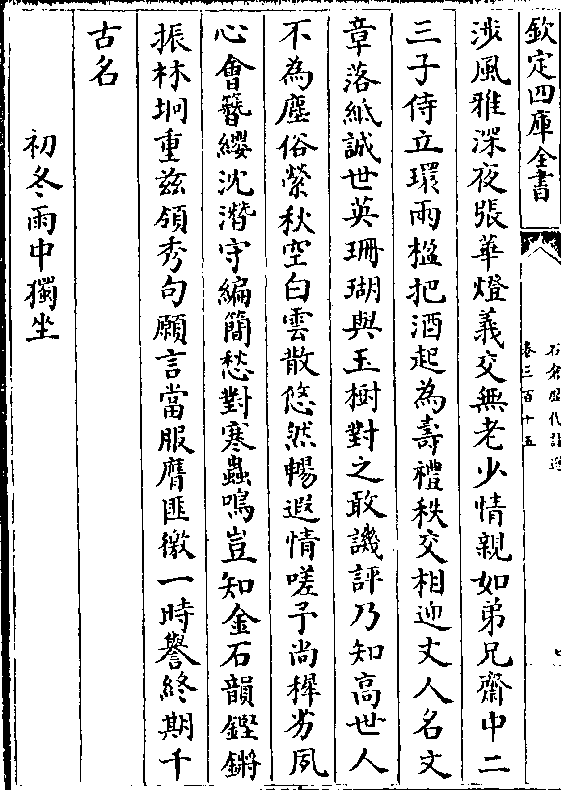 欽定四庫全書
石倉歷代詩選
卷三百十五
涉風雅深夜張華燈義交無老少情親如弟兄齋中二
三子侍立環兩楹把酒起為壽禮秩交相迎丈人名文
章落紙誠世英珊瑚與玉樹對之敢譏評乃知高世人
不為塵俗縈秋空白雲散悠然暢遐情嗟予尚樨劣夙
心會簪纓沈潛守編簡愁對寒蟲鳴豈知金石韻鏗鏘
振林坰重兹領秀句願言當服膺匪徼一時譽終期千
古名
初冬雨中獨坐